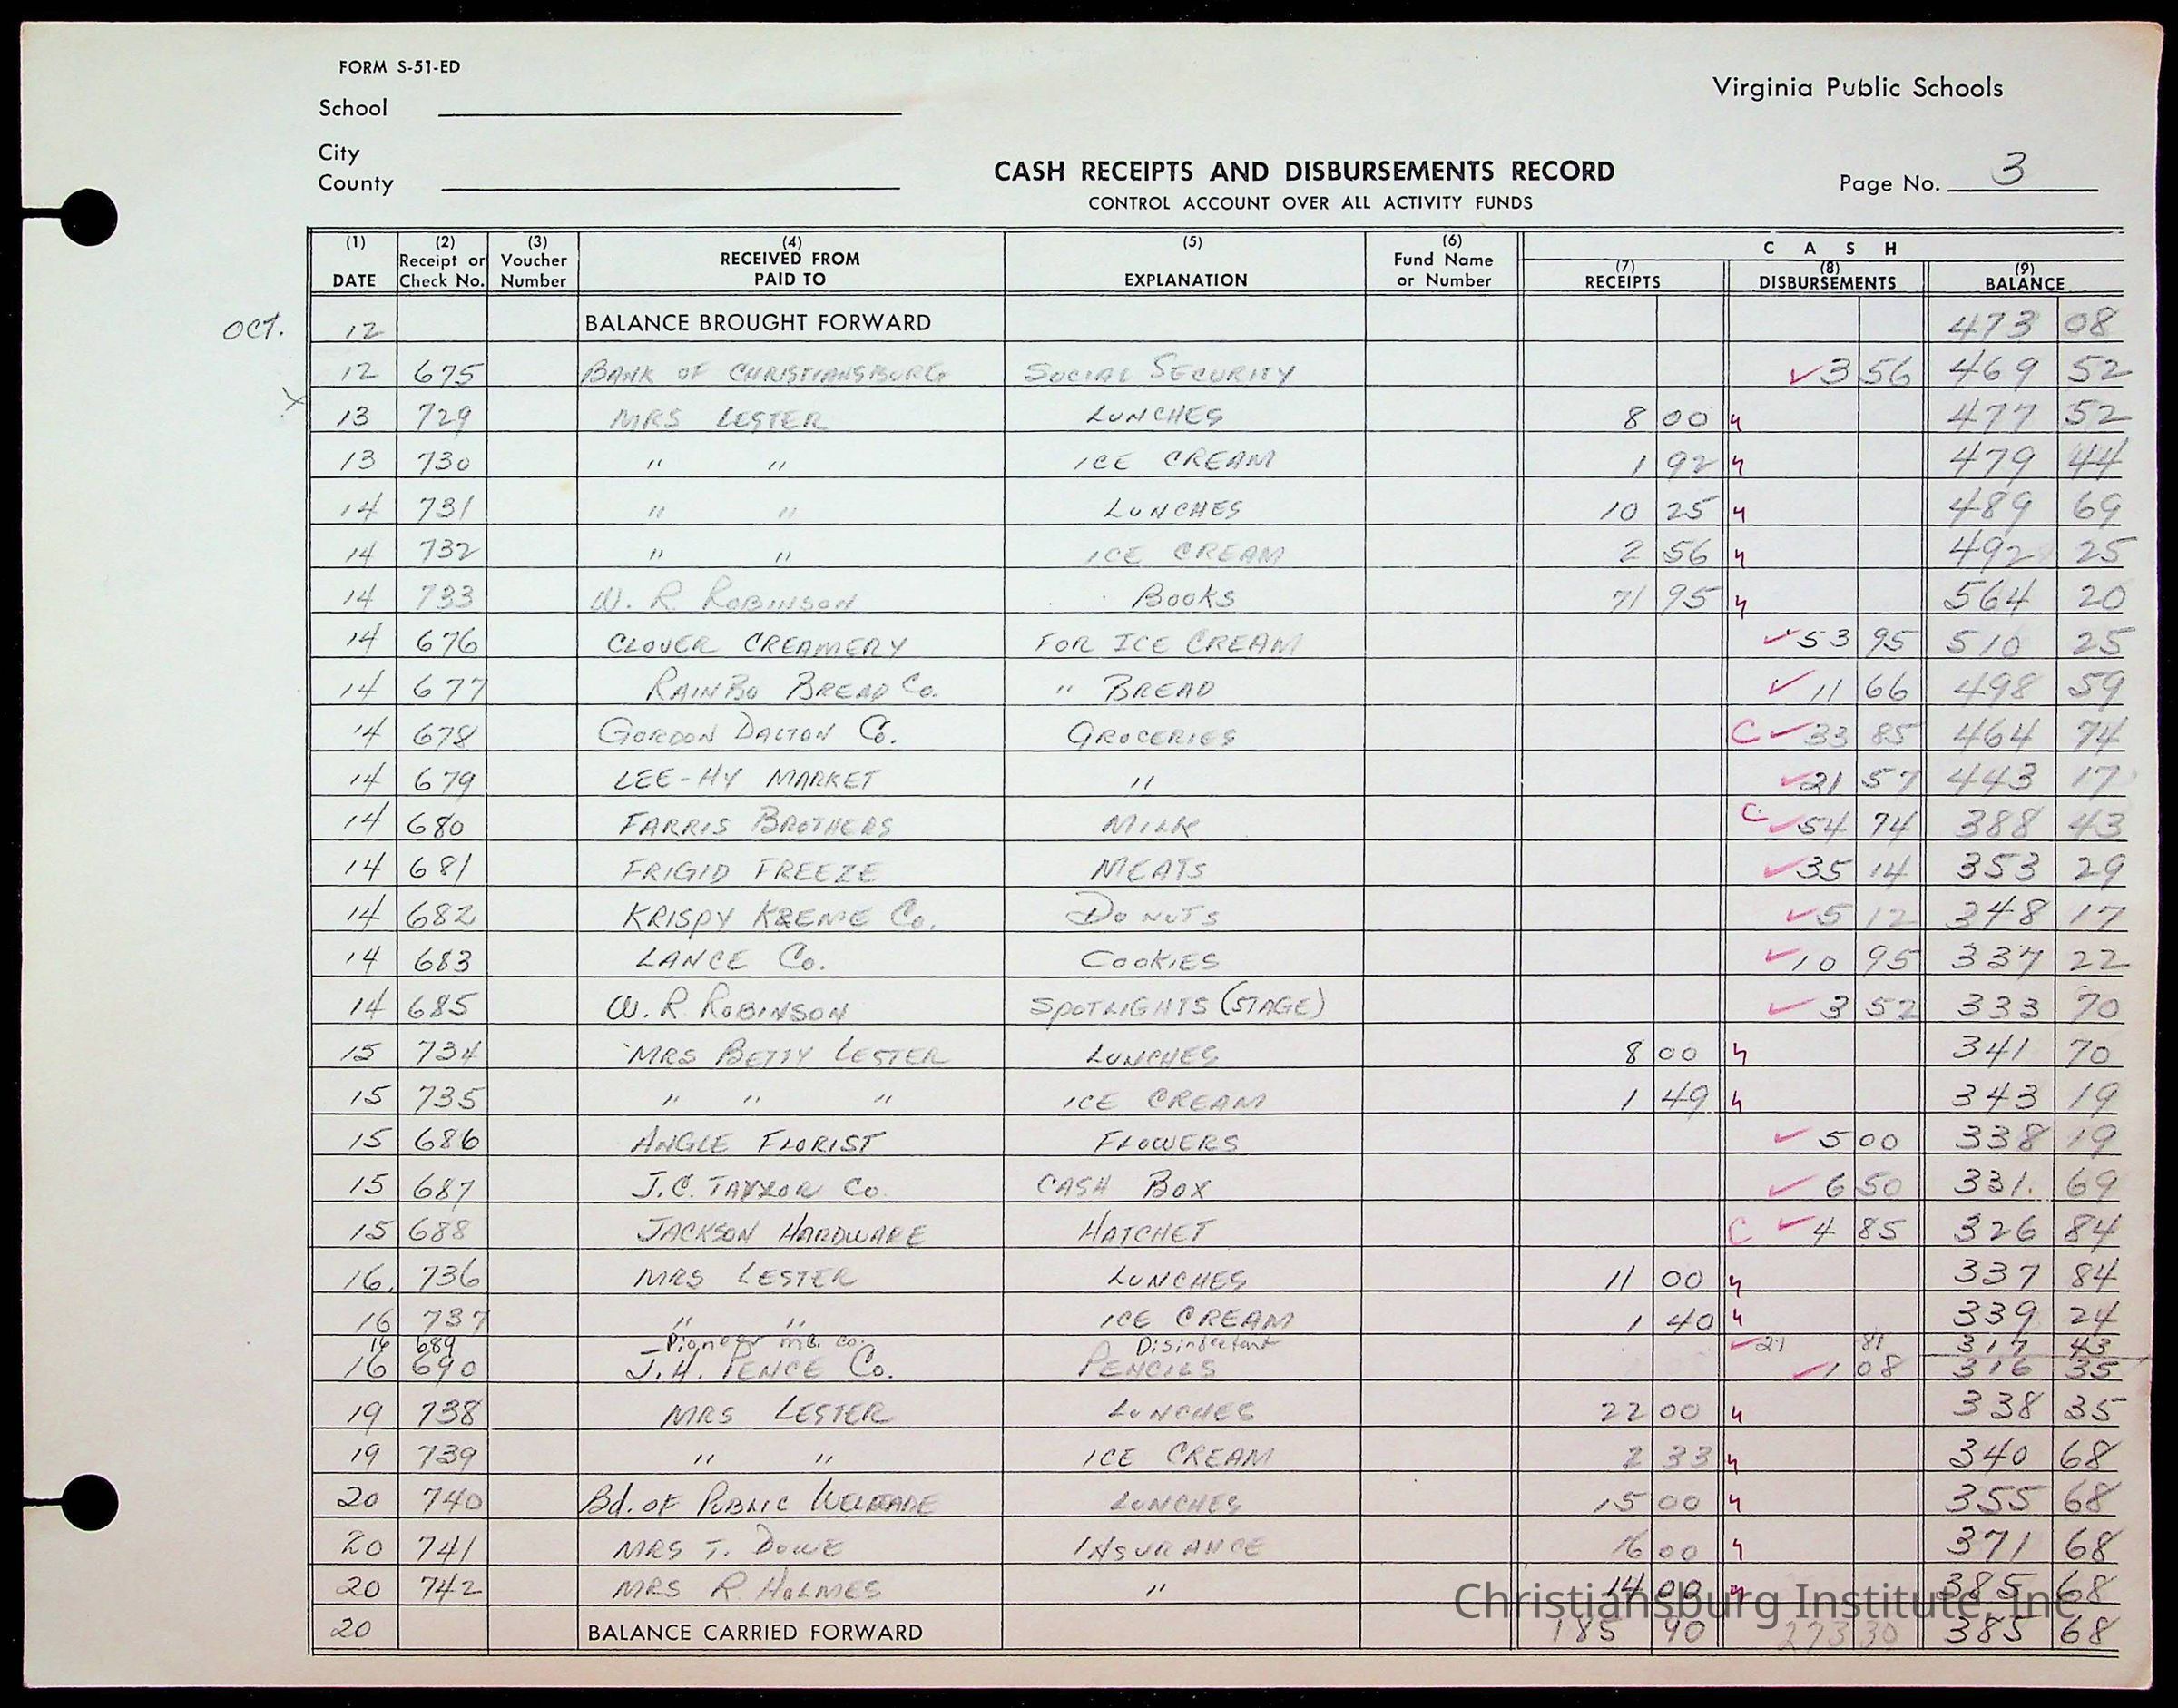 FORM S-51-ED
Virginia Public Schools
School
City
County
CASH RECEIPTS AND DISBURSEMENTS RECORD
CONTROL ACCOUNT OVER ALL ACTIVITY FUNDS
Page No. 3
(1) DATE (2) Receipt or Check No. (3) Voucher Number (4) RECEIVED FROM PAID TO (5) EXPLANATION (6) Fund Name or Number CASH (7) RECEIPTS (8) DISBURSEMENTS (9) BALANCE
OCT. 12 BALANCE BROUGHT FORWARD 473 08
12 675 BANK OF CHRISTIANSBURG SOCIAL SECURITY ✓3 56 469 52
X 13 729 MRS LESTER LUNCHES 8 00 477 52
13 730 " " ICE CREAM 1 92 479 44
14 731 " " LUNCHES 10 25 489 69
14 732 " " ICE CREAM 2 56 492 25
14 733 W. R. ROBINSON BOOKS 71 95 564 20
14 676 CLOVER CREAMERY FOR ICE CREAM ✓53 95 510 25
14 677 RAINBO BREAD Co. " BREAD ✓11 66 498 59
14 678 GORDON DALTON Co. GROCERIES C ✓33 85 464 74
14 679 LEE-HY MARKET " ✓21 57 443 17
14 680 FARRIS BROTHERS MILK C ✓54 74 388 43
14 681 FRIGID FREEZE MEATS ✓35 14 353 29
14 682 KRISPY KREME Co. DO NUTS ✓5 12 348 17
14 683 LANCE Co. COOKIES ✓10 95 337 22
14 685 W. R. ROBINSON SPOTLIGHTS (STAGE) ✓3 52 333 70
15 734 MRS BETTY LESTER LUNCHES 8 00 341 70
15 735 " " " ICE CREAM 1 49 343 19
15 686 ANGLE FLORIST FLOWERS ✓5 00 338 19
15 687 J.C. TAYLOR Co. CASH BOX ✓6 50 331. 69
15 688 JACKSON HARDWARE HATCHET C ✓4 85 326 84
16. 736 MRS LESTER LUNCHES 11 00 337 84
16 737 " " ICE CREAM 1 40 339 24
16 689 Pioneer mfg. co. Disinfectant ✓21 81 317 43
16 690 J.H. PENCE Co. PENCILS ✓1 08 316 35
19 738 MRS LESTER LUNCHES 22 00 338 35
19 739 " " ICE CREAM 2 33 340 68
20 740 Bd. OF PUBLIC WELFARE LUNCHES 15 00 355 68
20 741 MRS T. DOWE INSURANCE 16 00 371 68
20 742 MRS R. HOLMES " 14 00 385 68
20 BALANCE CARRIED FORWARD 185 90 273 30 385 68
Christiansburg Institute, Inc